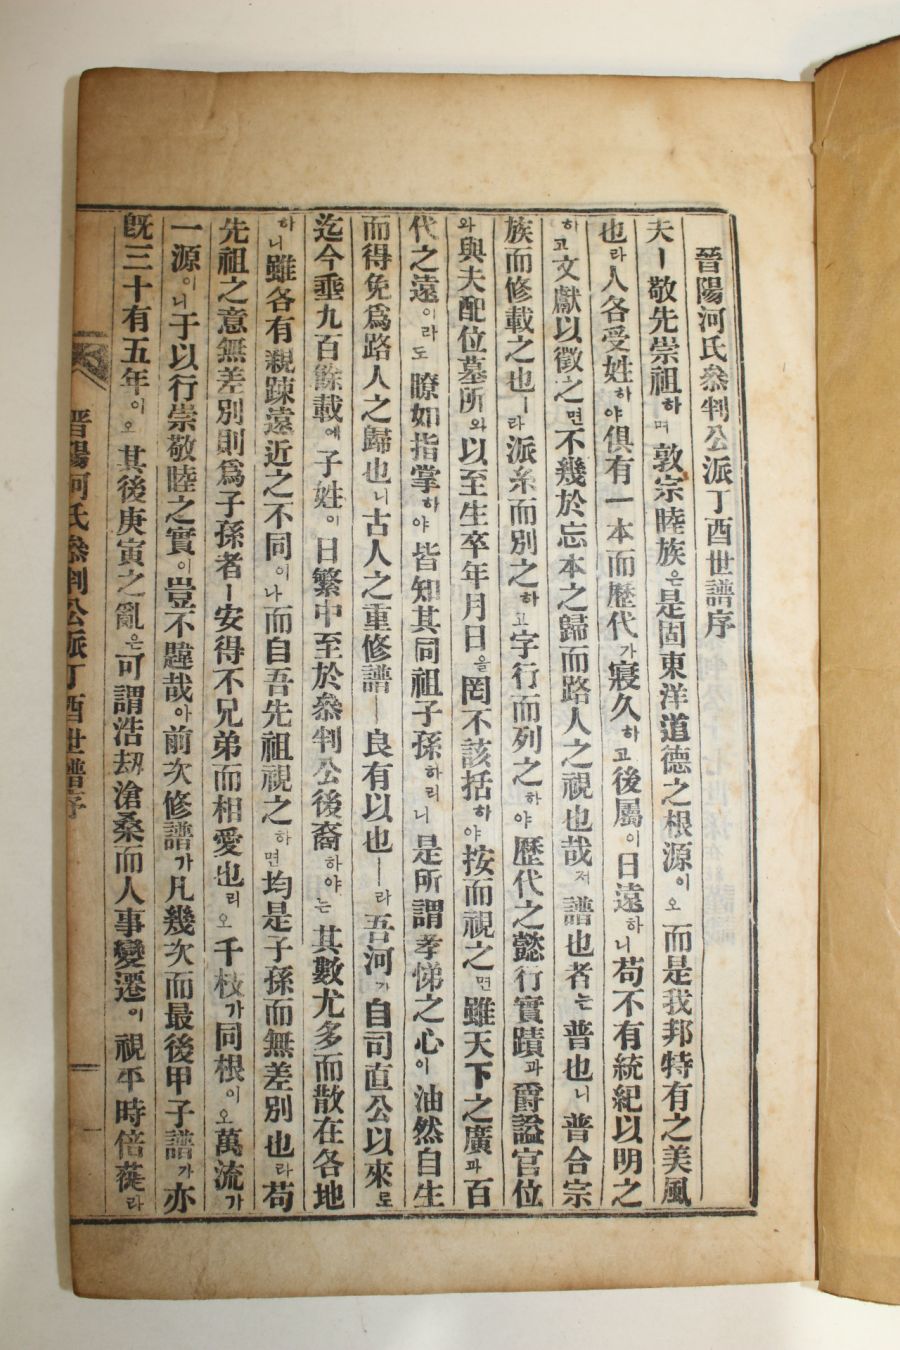 晉陽河氏叅判公派丁酉世譜序
夫ㅣ敬先崇祖하며敦宗睦族은是固東洋道德之根源이오而是我邦特有之美風
也라人各受姓하야俱有一本而歷代가寢久하고後屬이日遠하니苟不有統紀以明之
하고文獻以徵之면不幾於忘本之歸而路人之視也哉저譜也者는普也니普合宗
族而修載之也ㅣ라派系而別之하고字行而列之하야歷代之懿行實蹟과爵謚官位
와與夫配位墓所와以至生卒年月日을罔不該括하야按而視之면雖天下之廣과百
代之遠이라도瞭如指掌하야皆知其同祖子孫하리니是所謂孝悌之心이油然自生
而得免爲路人之歸也니古人之重修譜ㅣ良有以也ㅣ라吾河가自司直公以來로
迄今垂九百餘載에子姓이日繁中至於叅判公後裔하야는其數尤多而散在各地
하니雖各有親踈遠近之不同이나而自吾先祖視之하면均是子孫而無差別也라苟
先祖之意無差別則爲子孫者ㅣ安得不兄弟而相愛也리오千枝가同根이오萬流가
一源이니于以行崇敬睦之實이豈不韙哉아前次修譜가凡幾次而最後甲子譜가亦
旣三十有五年이오其後庚寅之亂은可謂浩刼滄桑而人事變遷이視平時倍蓰라
晋陽河氏叅判公派丁酉世譜序
一